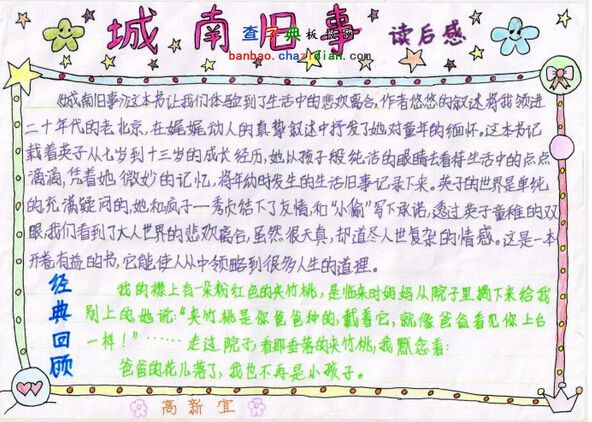 城南旧事 读后感
查字典板报网
banbao.chazidian.com
《城南旧事》这本书让我们体验到了生活中的悲欢离合,作者悠悠的叙述将我领进
二十年代的老北京,在娓娓动人的真挚叙述中抒发了她对童年的缅怀。这本书记
载着英子从七岁到十三岁的成长经历,她以孩子般纯洁的眼睛去看待生活中的点点
滴滴,凭着她微妙的记忆,将年幼时发生的生活旧事记录下来。英子的世界是单纯
的充满疑问的,她和疯子——秀贞结下了友情,和“小偷”写下承诺,透过英子童稚的双
眼,我们看到了大人世界的悲欢离合,虽然很天真,却道尽人世复杂的情感。这是一本
开卷有益的书,它能使人从中领略到很多人生的道理。
经典回顾
我的襟上有一朵粉红色的夹竹桃,是临来时妈妈从院子里摘下来给我
别上的她说:“夹竹桃是你爸爸种的,戴着它,就像爸爸看见你上台
一样!”……走过院子,看那垂落的夹竹桃,我默念着:
爸爸的花儿落了,我也不再是小孩子。
高新宜